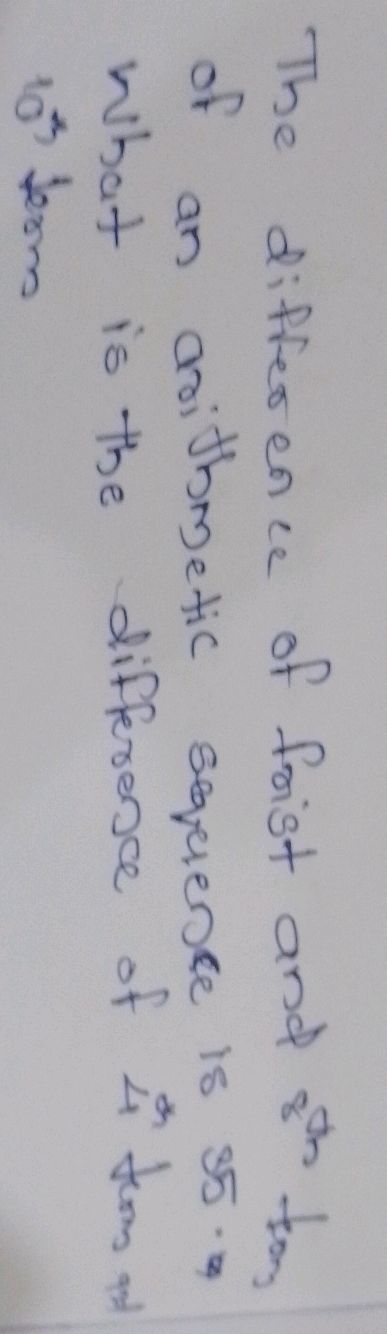 The difference of frist and 8th term
of an arithmetic sequence is 35.
What is the difference of 4th term and
10th term